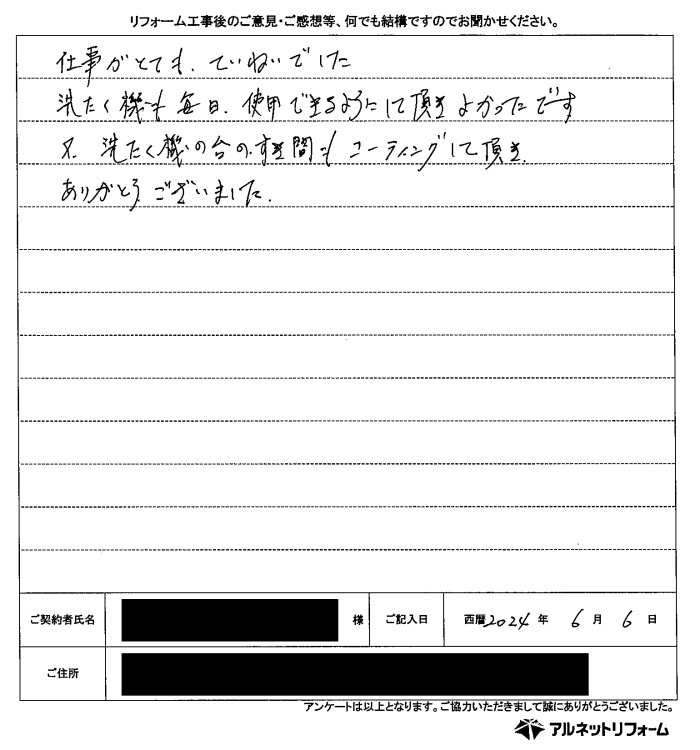 リフォーム工事後のご意見・ご感想等、何でも結構ですのでお聞かせください。
仕事がとても、ていねいでした
洗たく機も毎日、使用できるようにして頂きよかったです
又、洗たく機の台の、すき間もコーティングして頂き、
ありがとうございました。
ご契約者氏名 様 ご記入日 西暦2024年 6月 6日
ご住所
アンケートは以上となります。ご協力いただきまして誠にありがとうございました。
アルネットリフォーム